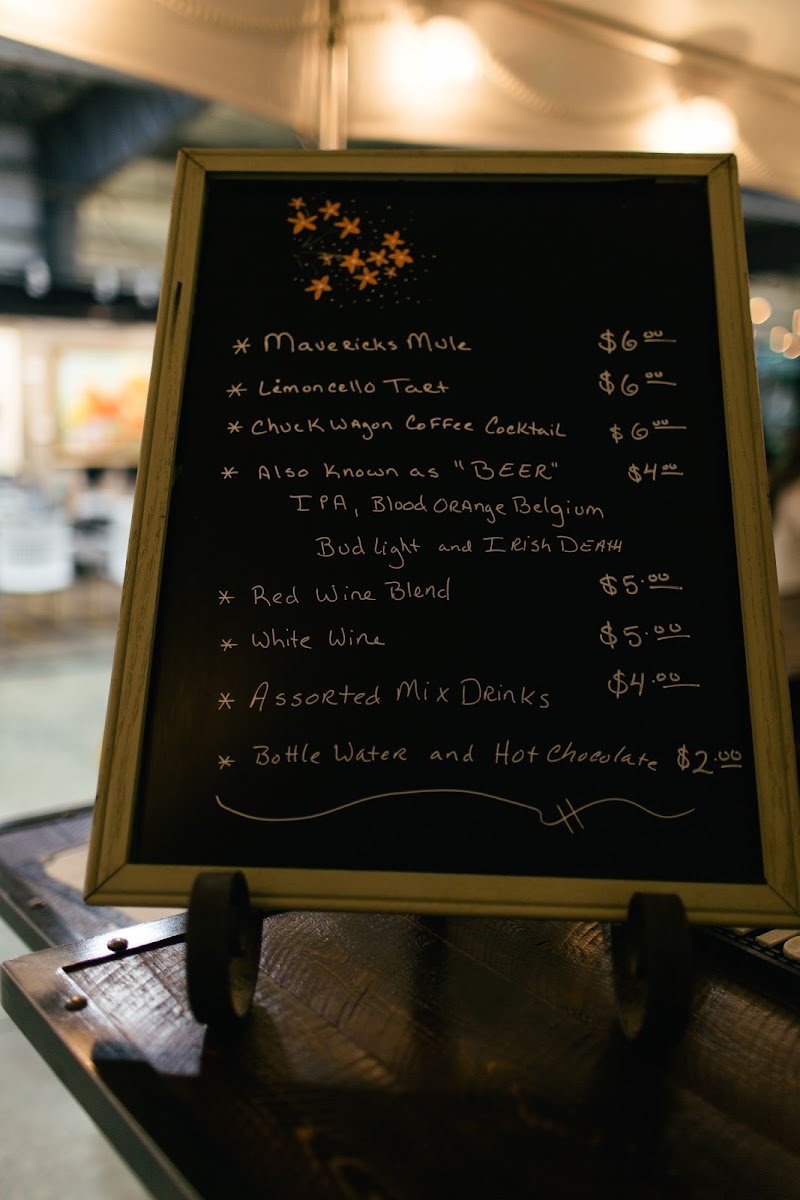 * Mavericks Mule $6.00
* Limoncello Tart $6.00
* Chuck Wagon Coffee Cocktail $6.00
* Also Known as "BEER" $4.00
IPA, Blood Orange Belgium
Bud light and Irish Death
* Red Wine Blend $5.00
* White Wine $5.00
* Assorted Mix Drinks $4.00
* Bottle Water and Hot Chocolate $2.00